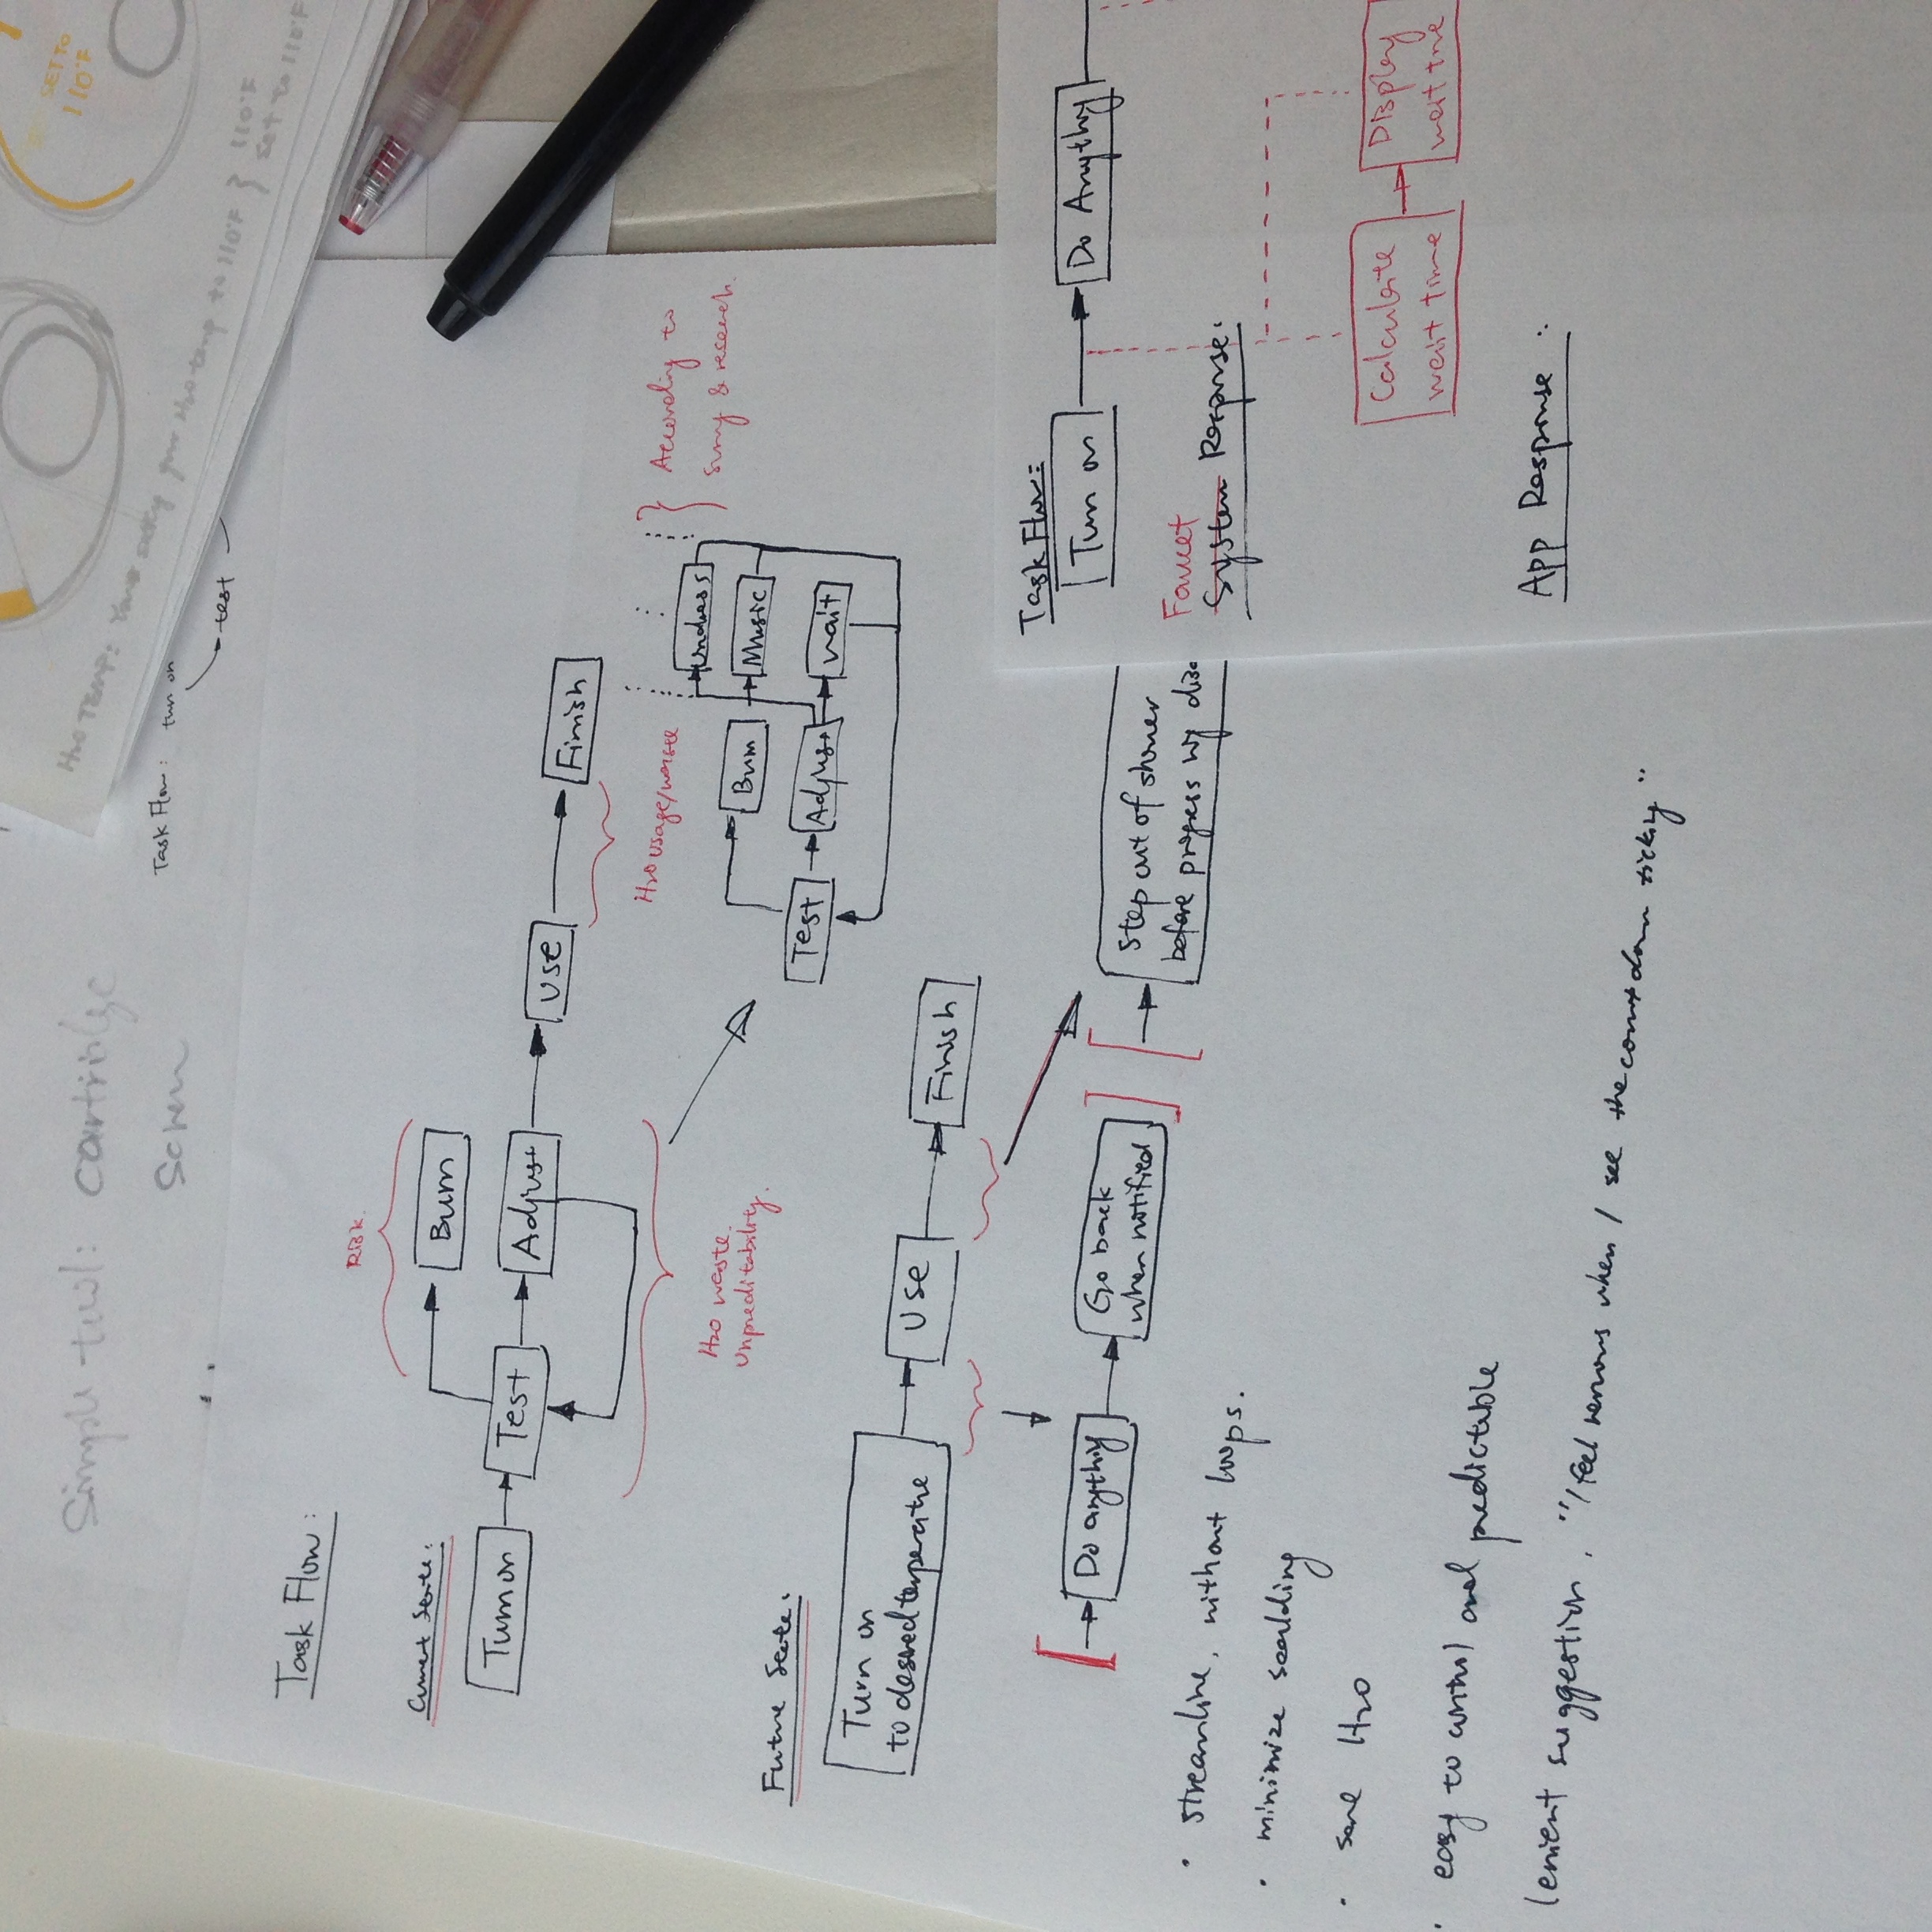 Simple tool: cartridge
Screw
Task Flow: turn on
test
SET TO
110°F
H2O TEMP: your H2O temp to 110°F } 110°F
set to 110°F
Task Flow:
Risk.
Current State:
Burn
Turn on
Test
Adjust
Use
Finish
H2O waste.
Unpreditability.
H2O usage/waste
Undress
According to
& research.
Burn
Music
Test
Adjust
Wait
Future State:
Turn on
to desired temperature
Use
Finish
Do anything
Go back
when notified
Step out of shower
before progress
• streamline, without loops.
• minimize scalding
• save H2O
• easy to control and predictable
lenient suggestion, "I feel nervous when I see the countdown ticking"
Task Flow:
Turn on
Do Anything
Faucet
System Response:
Calculate
wait time
Display
wait time
App Response :